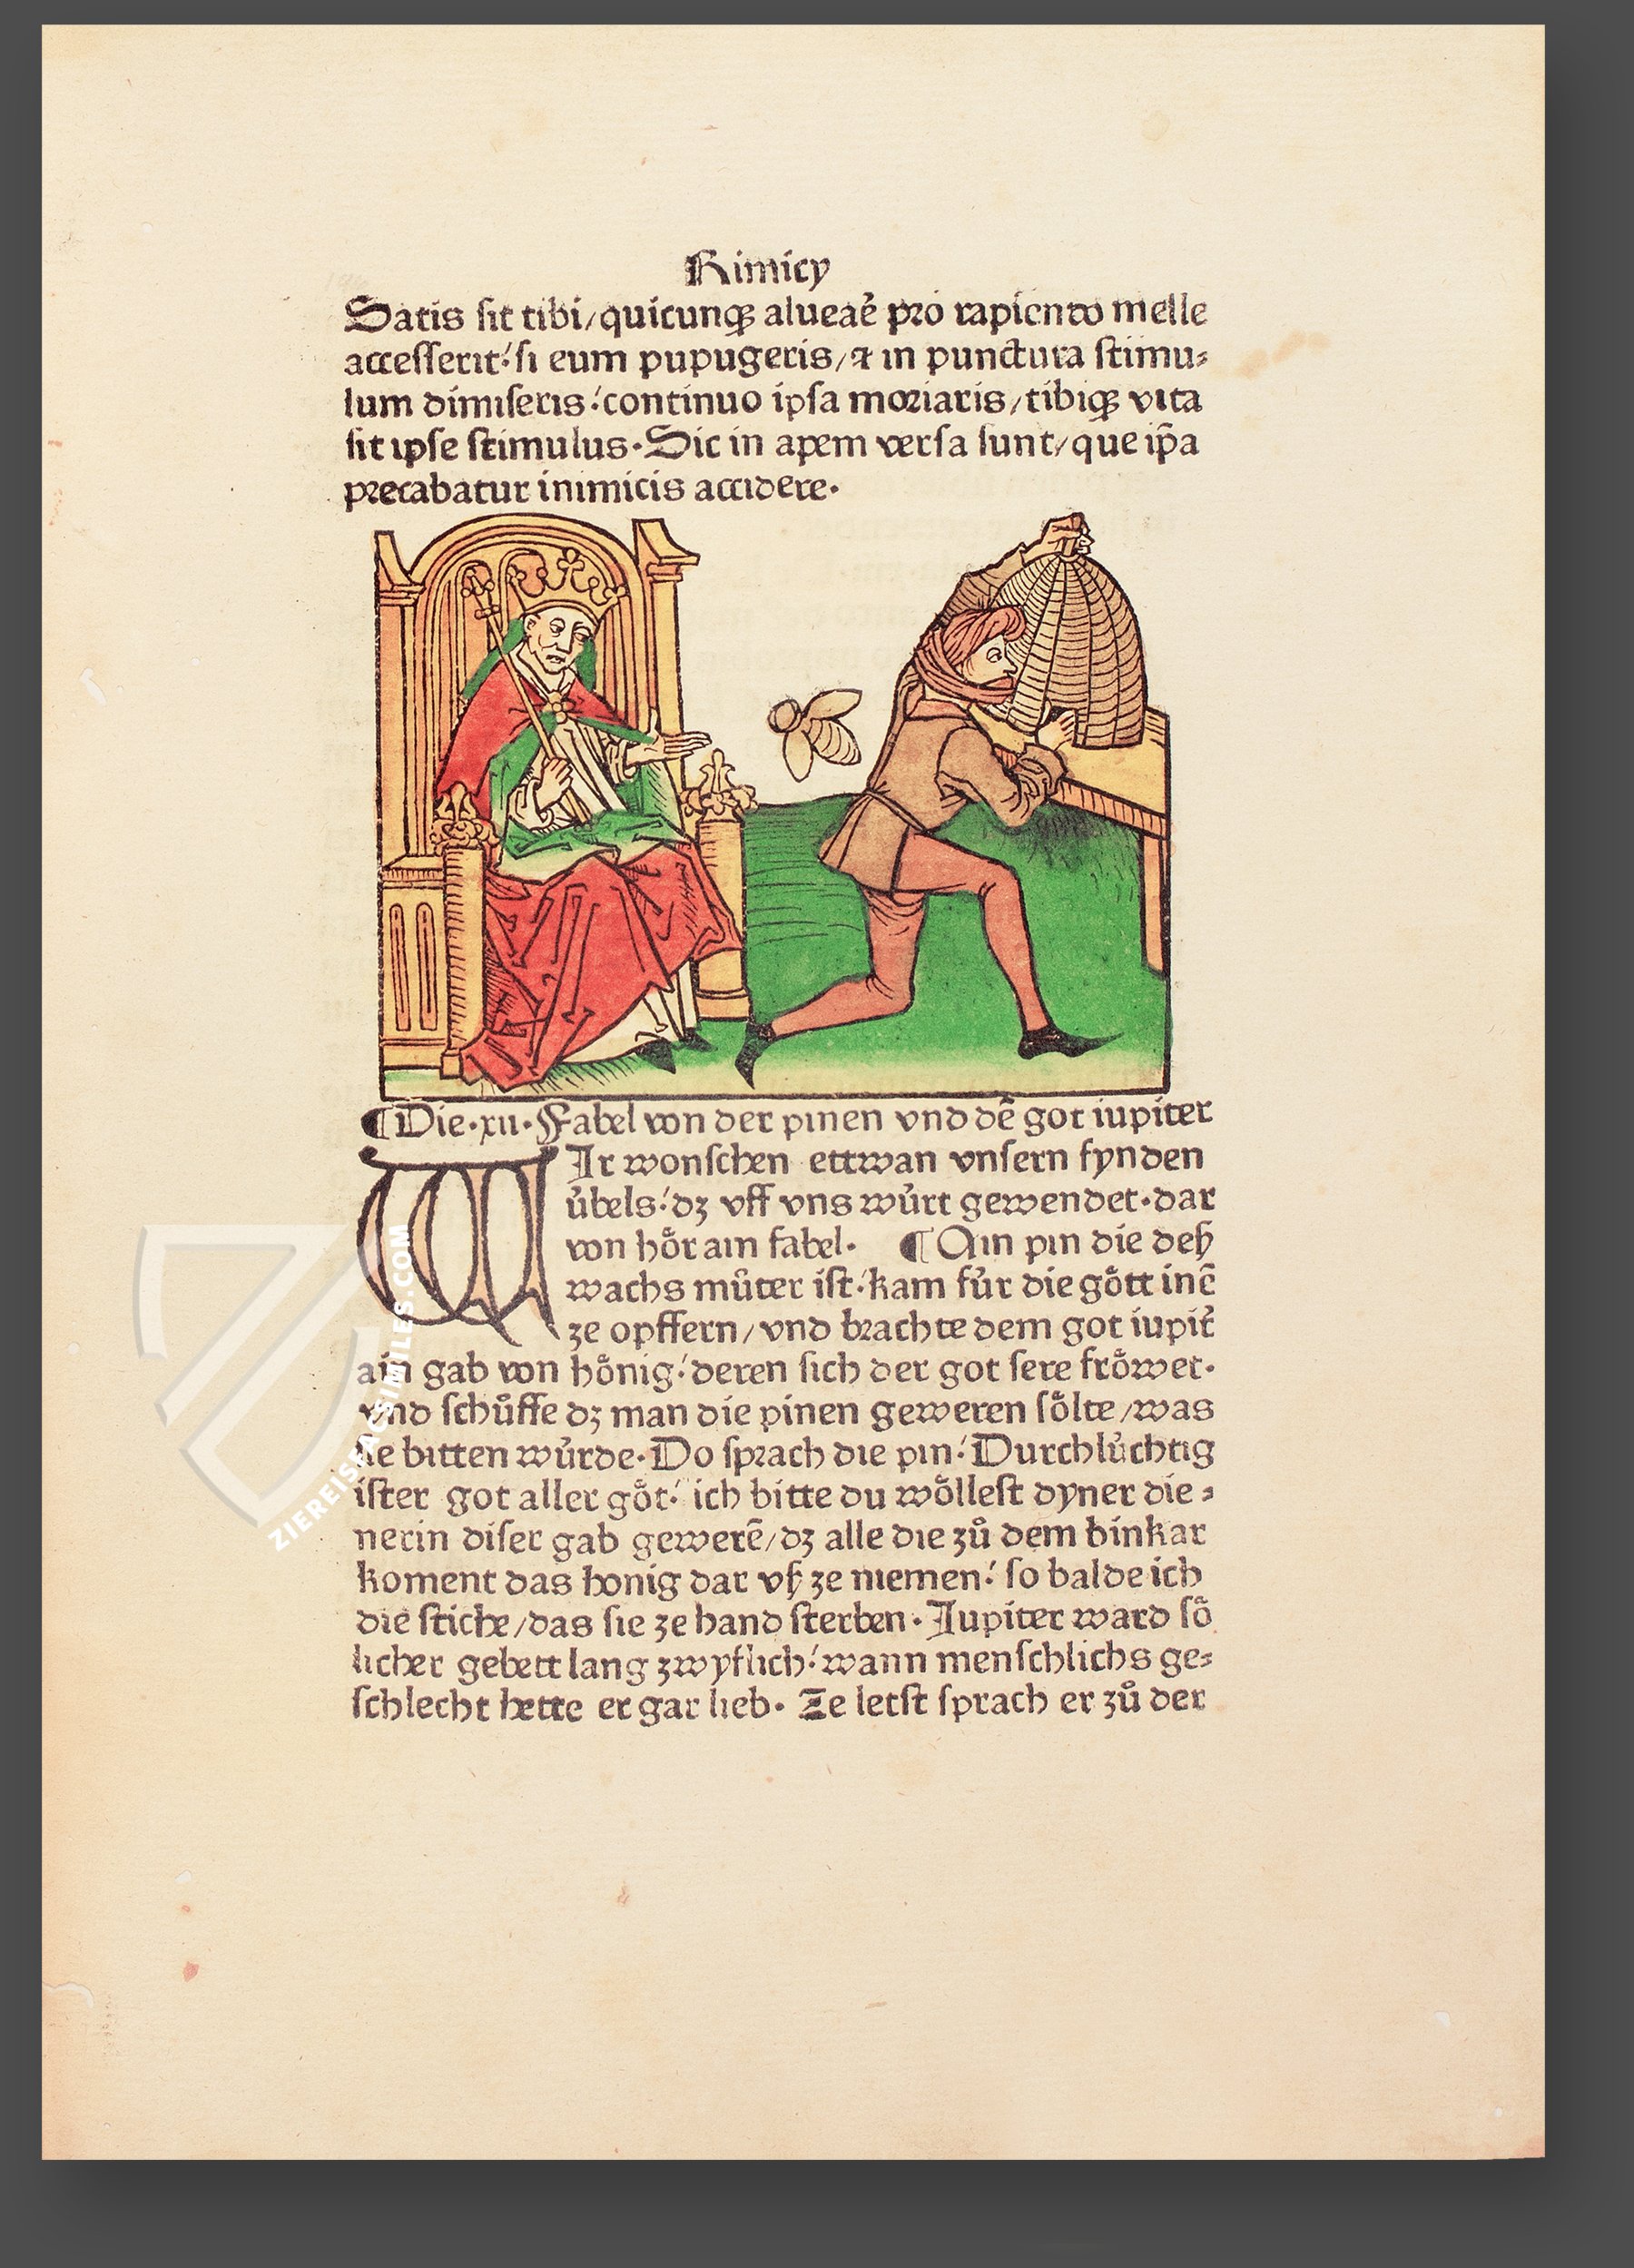 Rimicy
Satis sit tibi/quicunqꝫ alueaē pro rapiendo melle
accesserit:si eum pupugeris/⁊ in punctura stimu⸗
lum dimiseris:continuo ipsa moriaris/tibiqꝫ vita
sit ipse stimulus·Sic in apem versa sunt/que ip̄a
precabatur inimicis accidere·
¶Die·xii·Fabel von der pinen vnd dē got iupiter
WIr wonschen ettwan vnsern fynden
úbels:dz vff vns wúrt gewendet·dar
von hoͤr ain fabel· ¶Ain pin die deß
wachs muͦter ist:kam fúr die goͤtt inē
ze opffern/vnd brachte dem got iupit̄
ain gab von hoͤnig:deren sich der got sere froͤwet·
vnd schuͦffe dz man die pinen geweren soͤlte/was
sie bitten wúrde·Do sprach die pin:Durchlúchtig
ister got aller goͤt: ich bitte du woͤllest dyner die⸗
nerin diser gab gewerē/dz alle die zuͦ dem binkar
koment das honig dar vß ze niemen:so balde ich
die stiche/das sie ze hand sterben·Iupiter ward soͤ
licher gebett lang zwyflich:wann menschlichs ge⸗
schlecht hette er gar lieb· Ze letst sprach er zuͦ der
ZIEREISFACSIMILES.COM